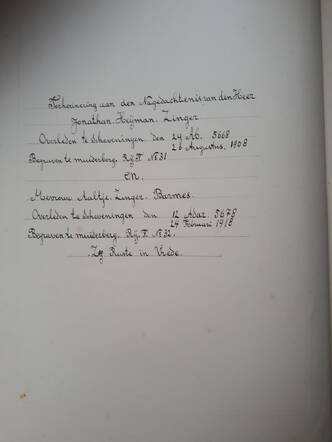 Terherinering aan den Nagedachtenis van den Heer
Jonathan Heijman. Zinger
Overleden te Scheveningen den 29 Ab. 5668
26 Augustus. 1908
Begraven te muiderberg. Rij. F. № 31
en.
Mevrouw Aaltje. Zinger. Barmes.
Overleden te Scheveningen den 12 Adar. 5678
24 Februari 1918
Begraven te muiderberg. Rij. F. № 32.
Zij Ruste in Vrede.